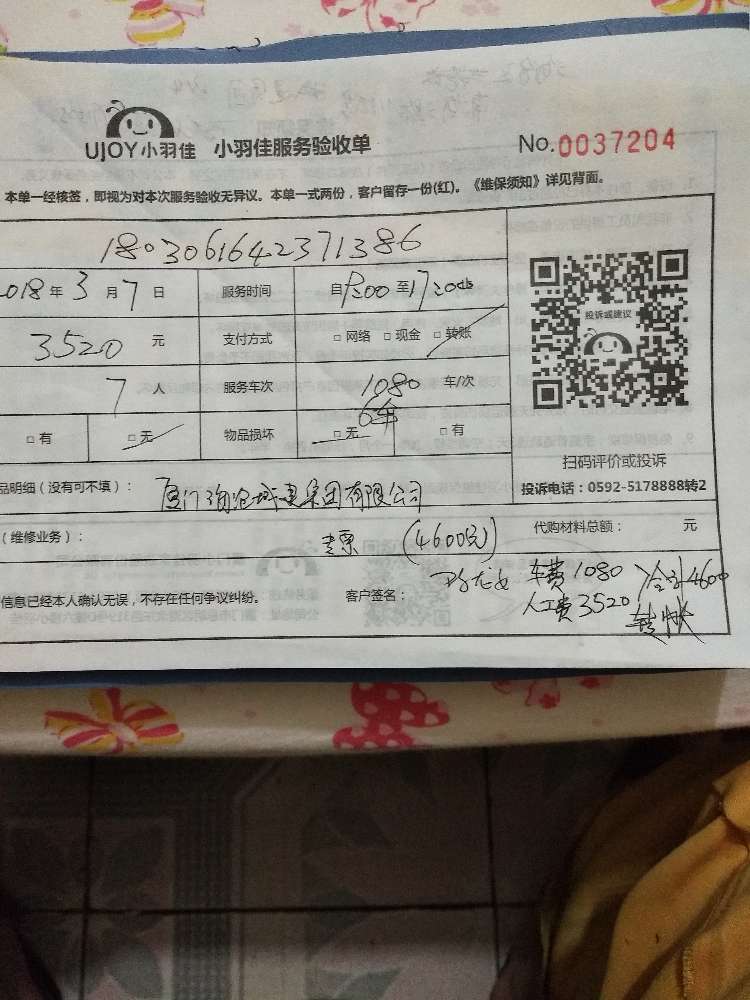 UJOY小羽佳 小羽佳服务验收单 No.0037204
本单一经核签，即视为对本次服务验收无异议。本单一式两份，客户留存一份(红)。《维保须知》详见背面。
1803061642371386
2018年3月7日 服务时间 自9:00至17:20
3520元 支付方式 □网络 □现金 □转账
投诉或建议
7人 服务车次 1080车/次
6车
□有 □无 物品损坏 □无 □有
扫码评价或投诉
品明细（没有可不填）： 厦门海沧城建集团有限公司 投诉电话：0592-5178888转2
（维修业务）： 专票 (4600元) 代购材料总额： 元
信息已经本人确认无误，不存在任何争议纠纷。 客户签名： 车费1080 合计4600
人工费3520 转账